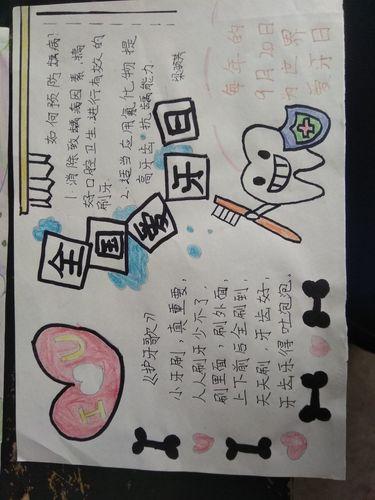 如何预防龋病?
1.消除致龋病因素,搞
好口腔卫生进行有效的
刷牙
2.适当应用氟化物提
高牙齿抗龋能力
每年的
9月20日
为世界
爱牙日
全国爱牙日
I U
《护牙歌》
小牙刷,真重要,
人人刷牙少不了.
刷里面,刷外面,
上下前后全刷到,
天天刷,牙齿好,
牙齿乐得吐泡泡。